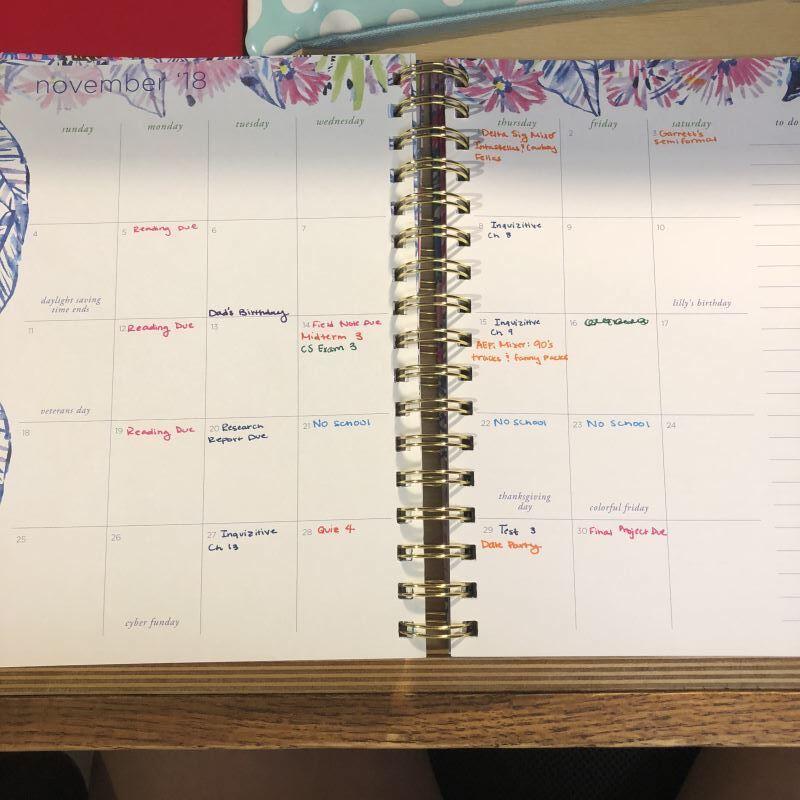 november '18
sunday monday tuesday wednesday thursday friday saturday to do
1 Delta Sig Mixer
& Cowboy
2
3 Garrett's
semiformal
4
daylight saving
time ends
5 Reading Due
6
Dad's Birthday
7
8 Inquizitive
Ch 8
9
10
lilly's birthday
11
veterans day
12 Reading Due
13
14 Field Note Due
Midterm 3
CS Exam 3
15 Inquizitive
Ch 9
AEPi Mixer: 90's
tracks & fanny packs
16
17
18
19 Reading Due
20 Research
Report Due
21 No School
22 No School
thanksgiving
day
23 No School
colorful friday
24
25
26
cyber funday
27 Inquizitive
Ch 13
28 Quiz 4
29 Test 3
Date Party
30 Final Project Due